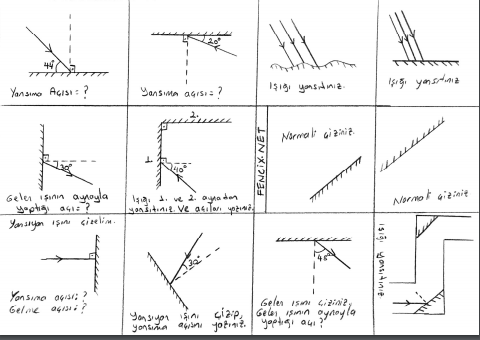 44°
Yansıma Açısı = ?
20°
Yansıma açısı = ?
Işığı yansıtınız.
Işığı yansıtınız
30°
Gelen ışının aynayla
yaptığı açı = ?
2.
1.
40°
Işığı 1. ve 2. aynadan
yansıtınız. Ve açıları yazınız.
FENCİX.NET
Normali çiziniz.
Normali çiziniz
Yansıyan ışını çizelim.
Yansıma açısı = ?
Gelme açısı = ?
30°
Yansıyan ışını çizip,
yansıma açısını yazınız.
45°
Gelen ışını çiziniz,
Gelen ışının aynayla
yaptığı açı ?
Işığı yansıtınız